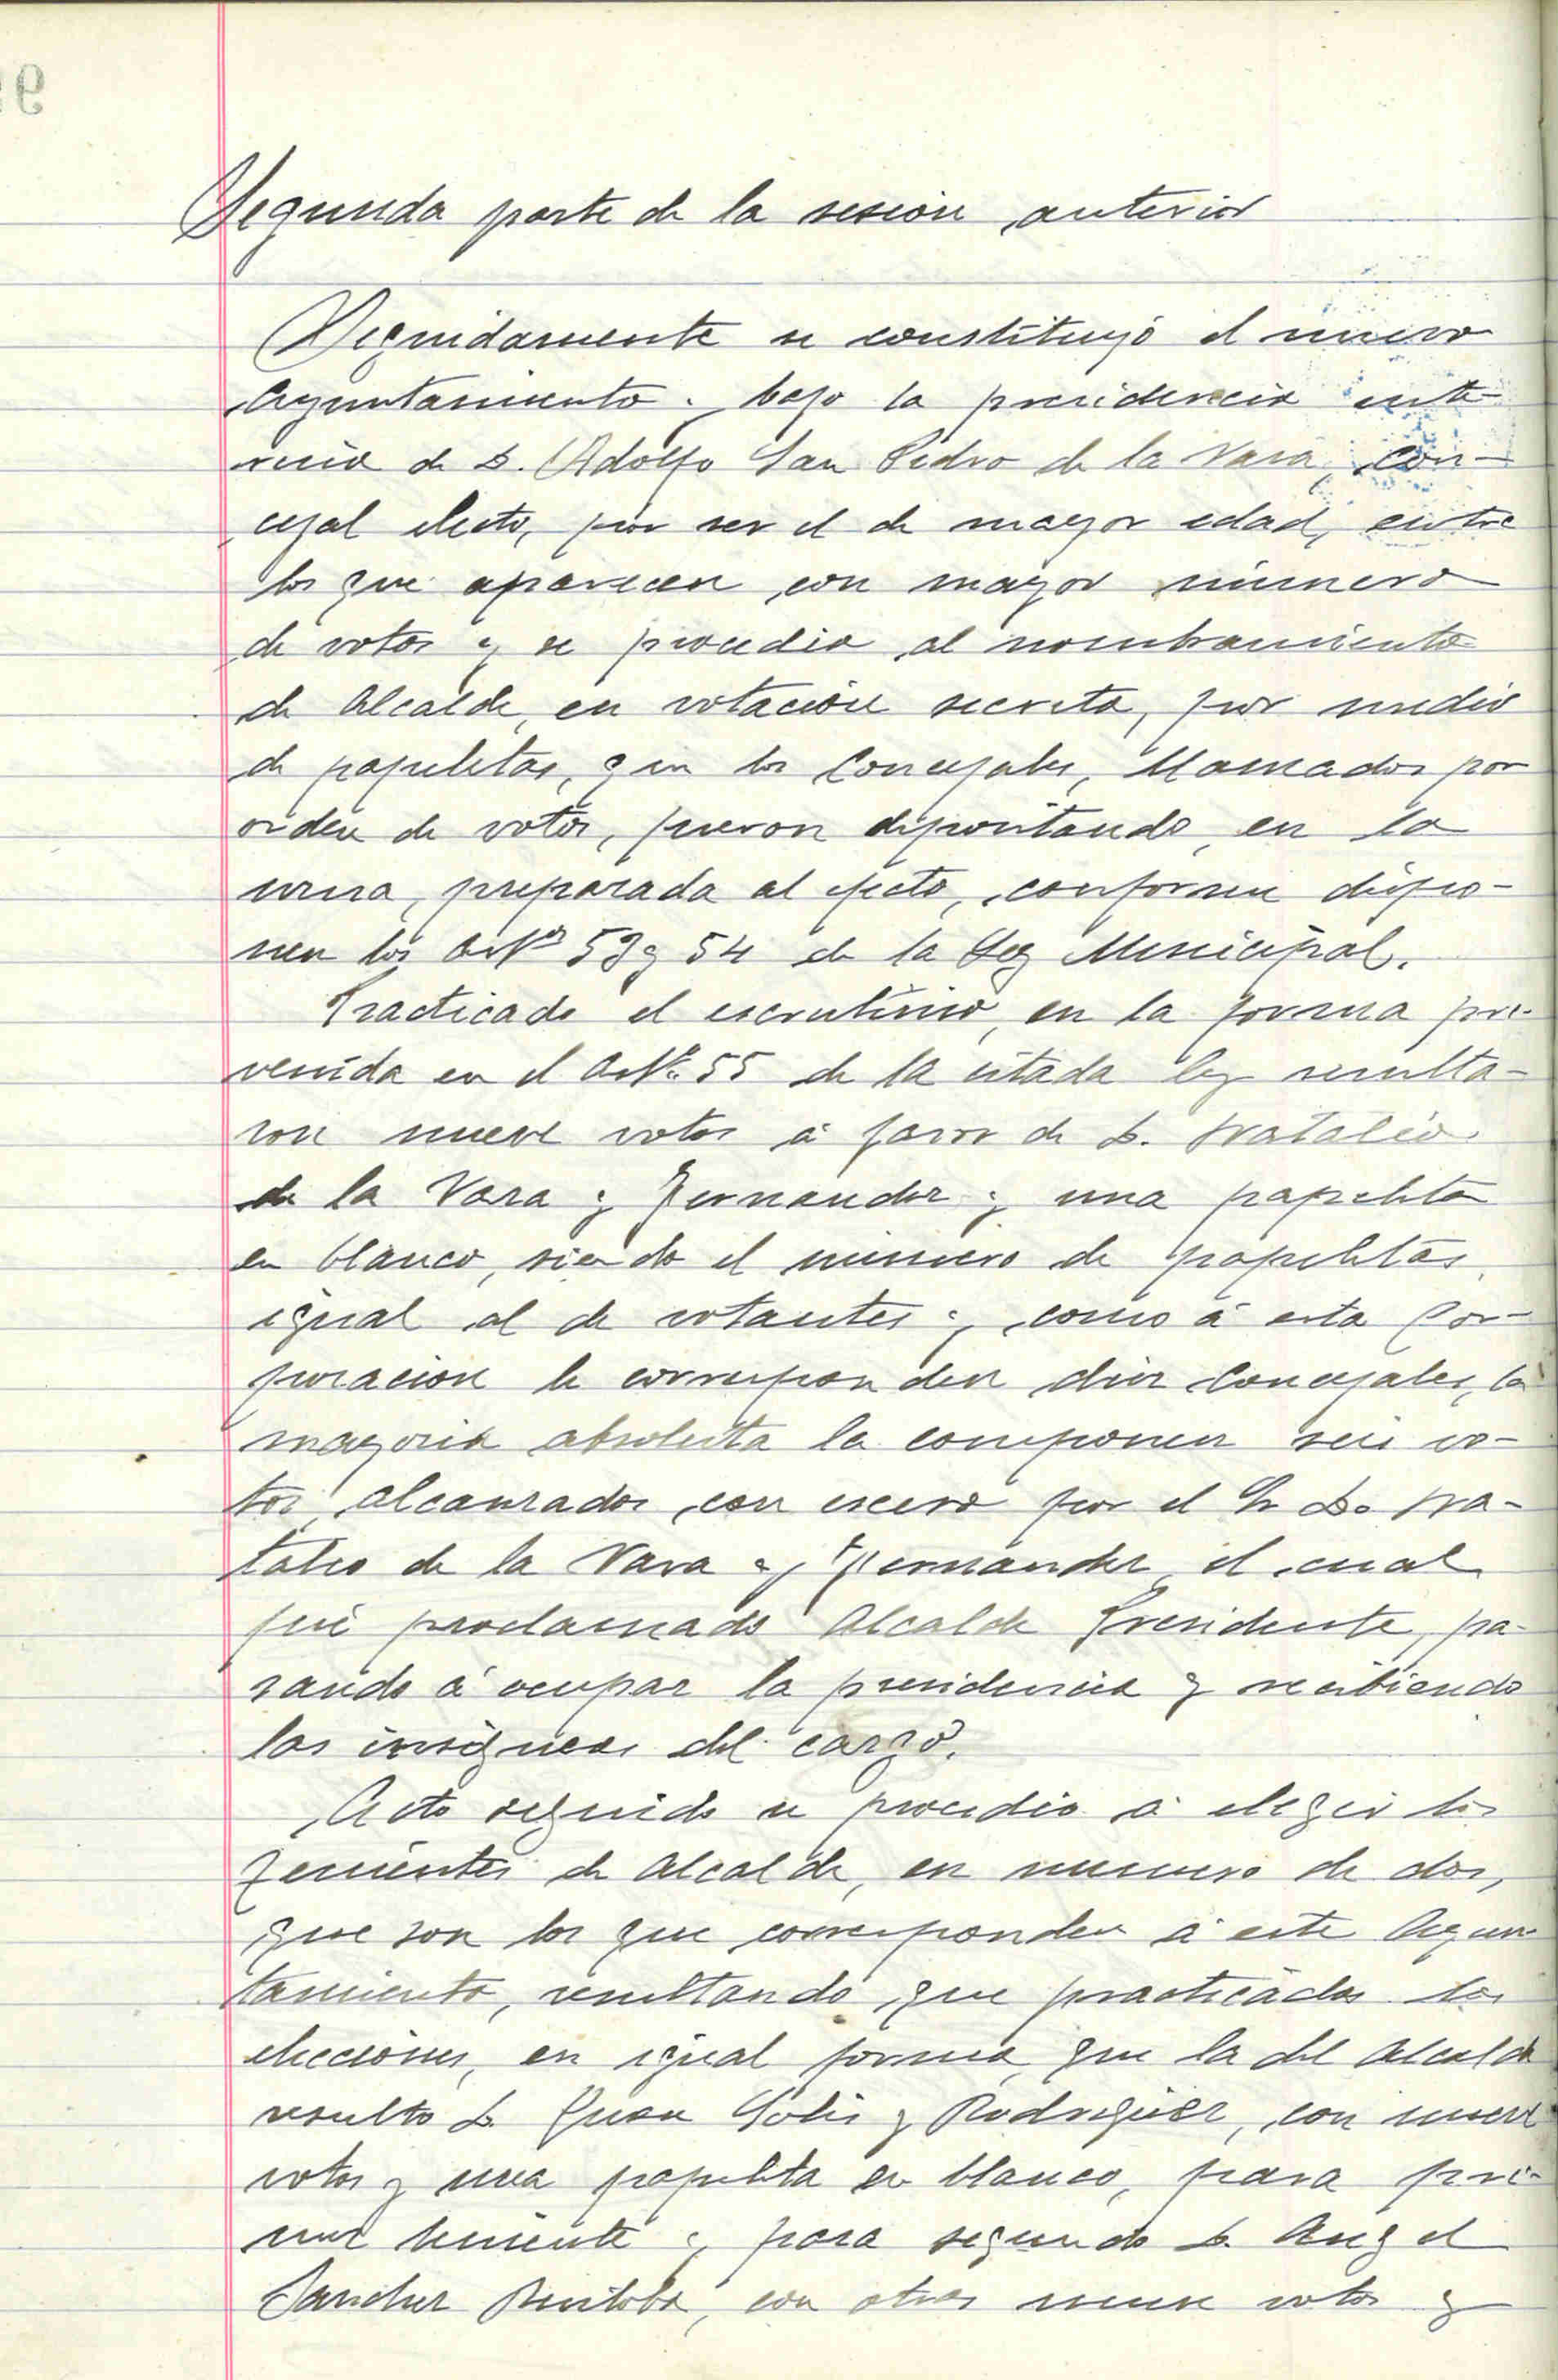 Segunda parte de la sesion anterior
Seguidamente se constituyó el nuevo
Ayuntamiento. bajo la presidencia inte-
rina de D. Adolfo San Pedro de la Vara, con-
cejal electo, por ser el de mayor edad, entre
los que aparecen con mayor número
de votos y se procedio al nombramiento
de Alcalde, en votación secreta, por medio
de papeletas, que los Concejales, llamados por
orden de votos, fueron depositando en la
urna, preparada al efecto, conforme dispo-
nen los Artos 53 y 54 de la Ley Municipal.
Practicado el escrutinio, en la forma pre-
venida en el Arto. 55 de la citada ley resulta-
ron nueve votos á favor de D. Natalio
de la Vara y Fernandez y una papeleta
en blanco, siendo el número de papeletas
igual al de votantes y, como á esta Cor-
poracion le corresponden diez Concejales, la
mayoria absoluta la componen seis vo-
tos, alcanzados con exceso por el Sr D. Na-
talio de la Vara y Fernandez, el cual
fué proclamado Alcalde Presidente, pa-
sando á ocupar la presidencia y recibiendo
las insignias del cargo.
Acto seguido se procedio á elegir los
Tenientes de Alcalde, en numero de dos,
que son los que corresponden á este Ayun-
tamiento, resultando, que practicadas las
elecciones, en igual forma, que la del Alcalde
resulto D. Juan Solis y Rodriguez, con nueve
votos y una papeleta en blanco, para pri-
mer teniente y, para segundo D. Angel
Sanchez, con otros nueve votos y